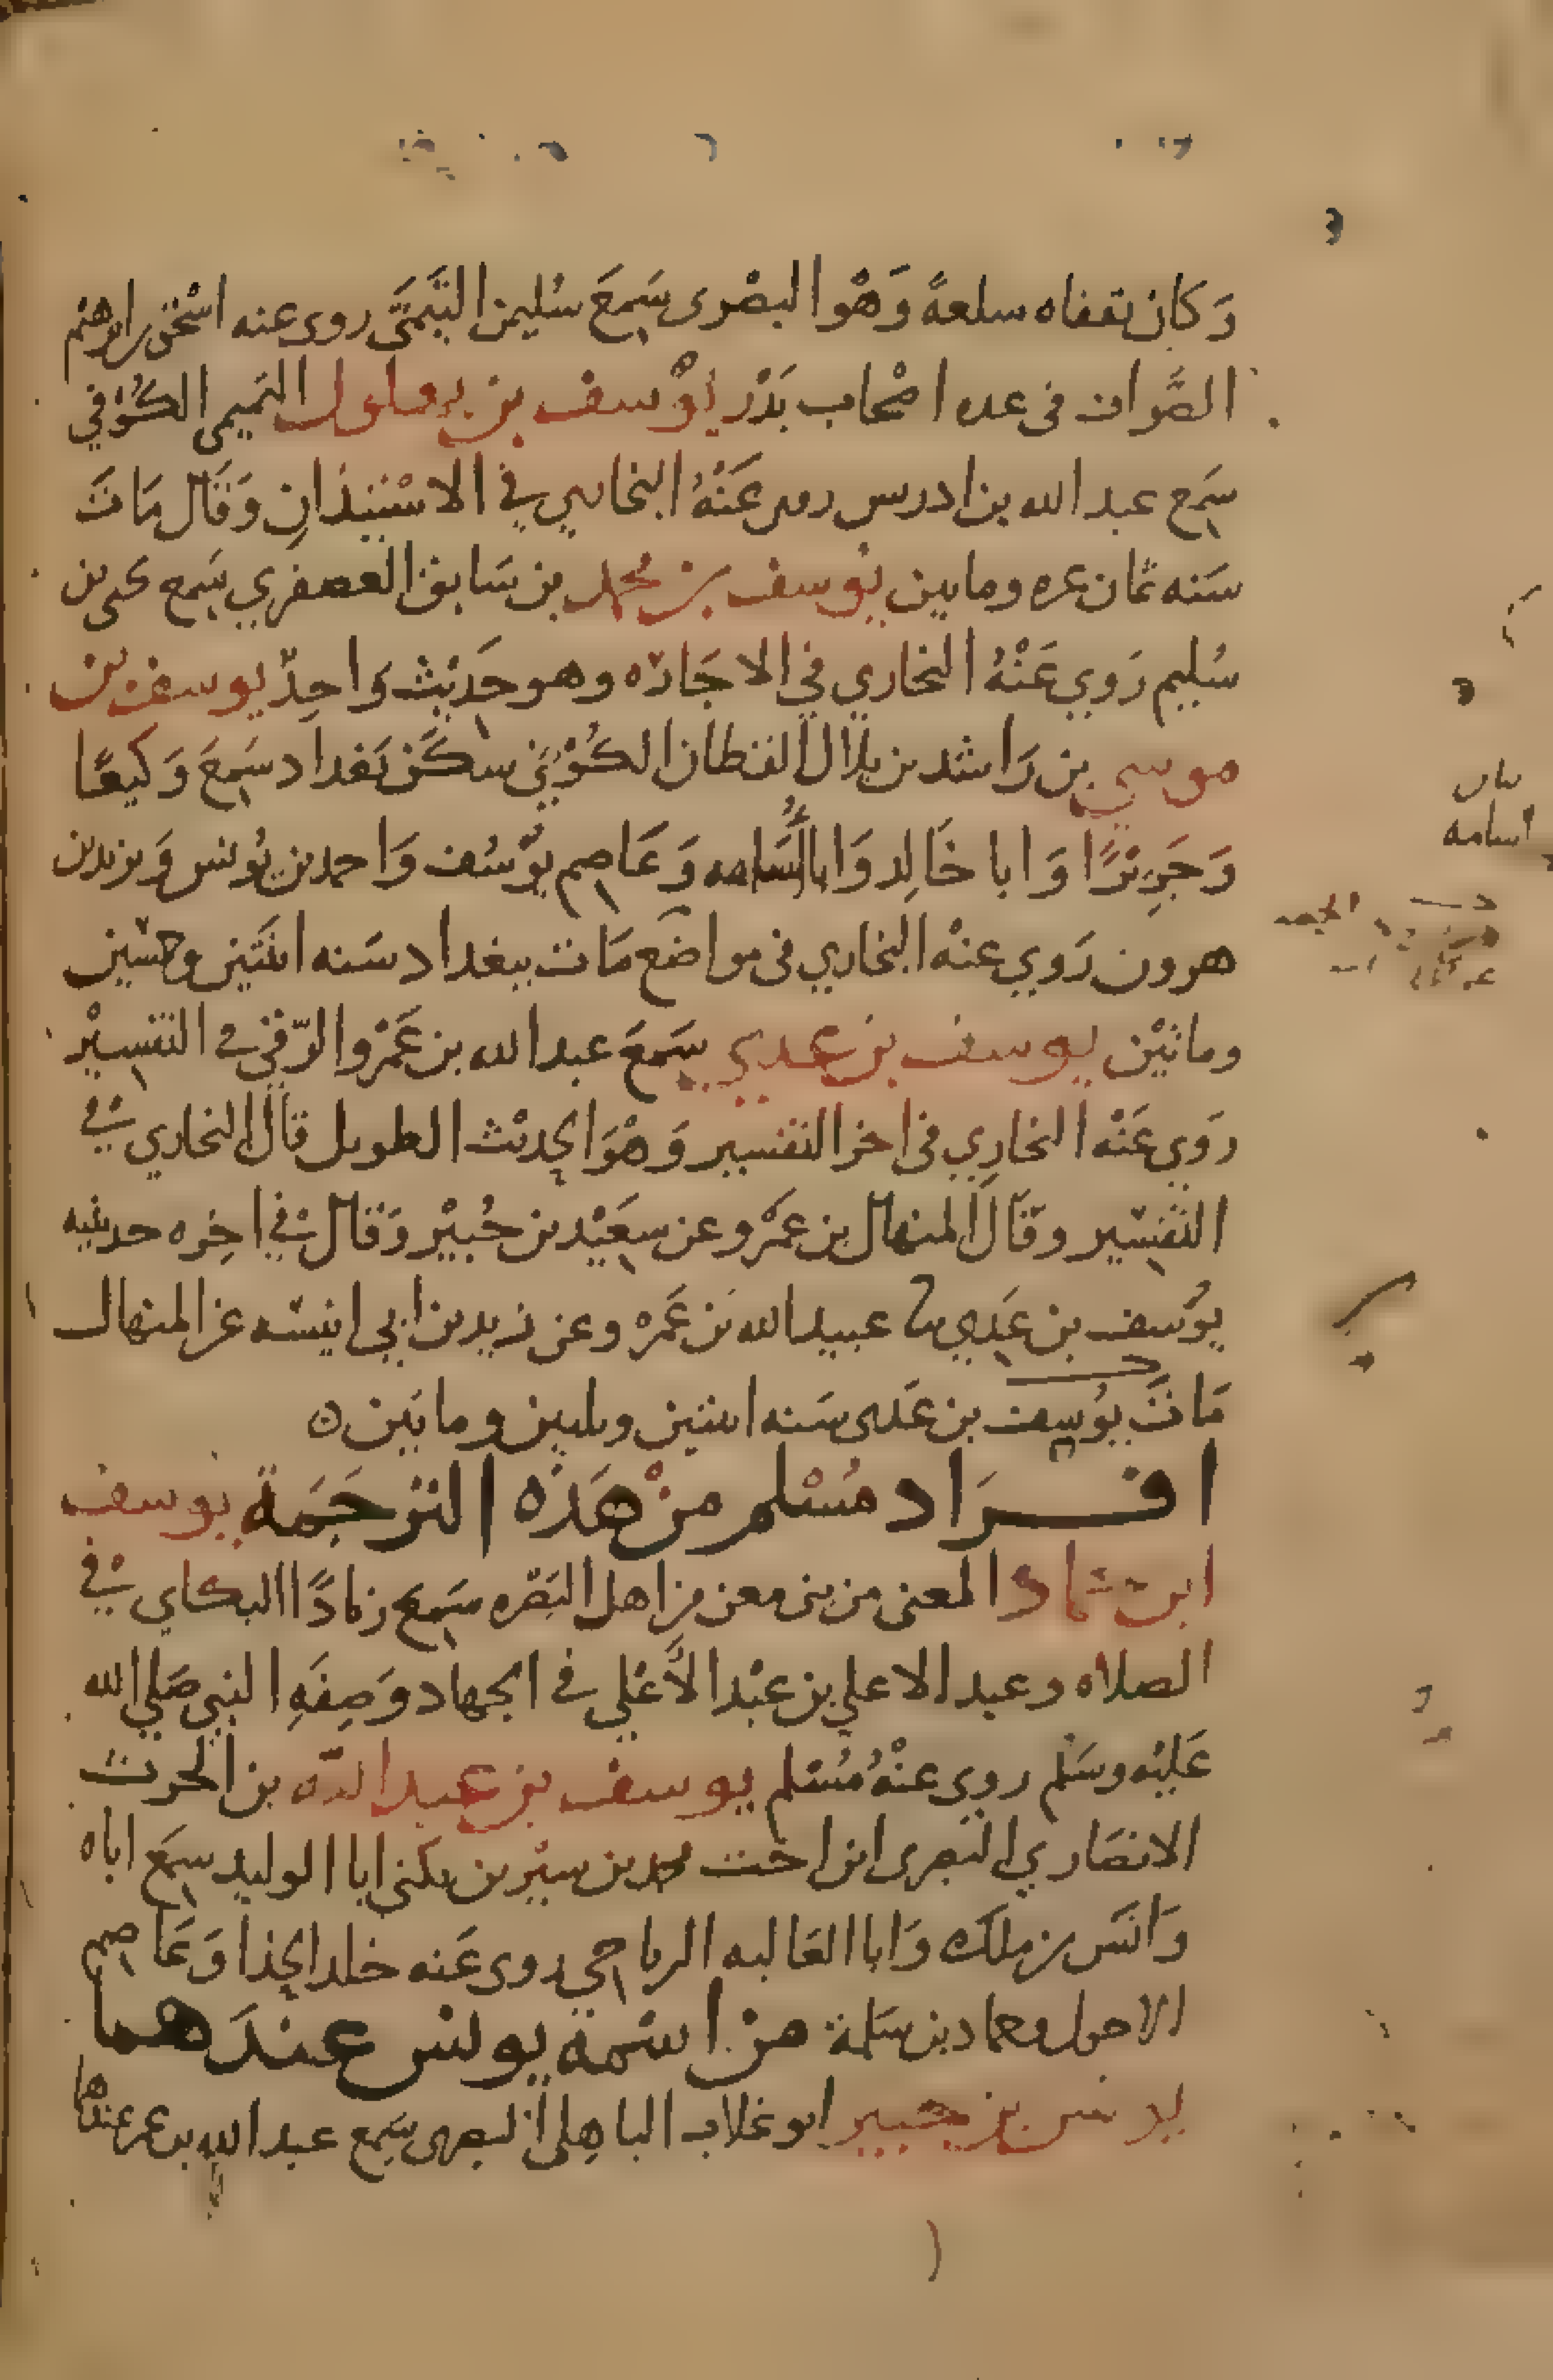 وَكان بقفاه سلعةً وَهْو البصْرى سَمِعَ سُليمن التَّيمَّى روى عنه اسْحٰق بن ابرهيم
الصَّواف فى عده اصْحاب بَدْر يُوْسف بن بهلول التميمى الكُوْفي
سَمِع عبد الله بن ادرىس روى عَنْهُ البخاري في الاسْتئِذانِ وَقَال مَاتَ
سَنه ثمان عره ومايىن يُوسف بن محمد بن سَابق العصفري سَمِع يحيى بن
سُليم رَوي عَنْهُ البخاري في الاجَارَه وهو حَدِيث وَاحِدٌ يوسف بن
موسي بن رَاشد بن بلال القطان الكُوْفي سكَنَ بَغداد سَمِعَ وَكيعًا
وَجَرِيْرًا وَابا خَالِد وَابا اُسَامه وَعَاصِم يوْسُف وَاحمد بن يُونس وَيزيد بن
هرون رَوي عنْه البخاري فى مواضع مَات ببغداد سَنه اثنَتين وخمسين
ومائتيْن يوسف بن عدي سَمِعَ عبد الله بن عَمْرو الرّقي في التفسِيْر
رَوي عَنْه البخارِي فى اخر التفسير وَهْوَ الحديْث الطويل قال البخاري في
التفسِير وقَال المنهال بن عمْرو عن سعَيْد بن جُبيْر وَقال في اخِره حدثنيه
يوُسف بن عَدِي ثنا عبيد الله بن عَمرْو عن زيد بن ابي انيسَه عن المنهال
مَاتَ يوُسف بن عَدى سَنه اثنتين وثلثين ومايتَين ٥
افــرَاد مُسْلم منْ هَذه الترجَمَة يوسف
ابن حماد المعنى من بنى معن من اهل البَصْره سَمِع زيادًا البكاي في
الصلاه وعبد الاعلي بن عبْد الأَعْلي في الجهاد وَصِفَهِ النبي صَلي الله
عَليْه وسَلم روى عنْهُ مُسْلم يوسف بن عبد الله بن الحرث
الانصَاري البَصرى ابن اخت محمد بن سيْرين يكنى ابا الوليد سَمِعَ اباه
وَانَس بن ملك وَابا العَاليه الرياحي روى عَنه خلد الحذا وَعَاصِم
الاحول وحماد بن سَلمة من اسْمه يونس عندَهما
يونس بن جبير ابو غلاب الباهِلى البصرى سَمِع عبد الله بن عمر عندهما
اسامه